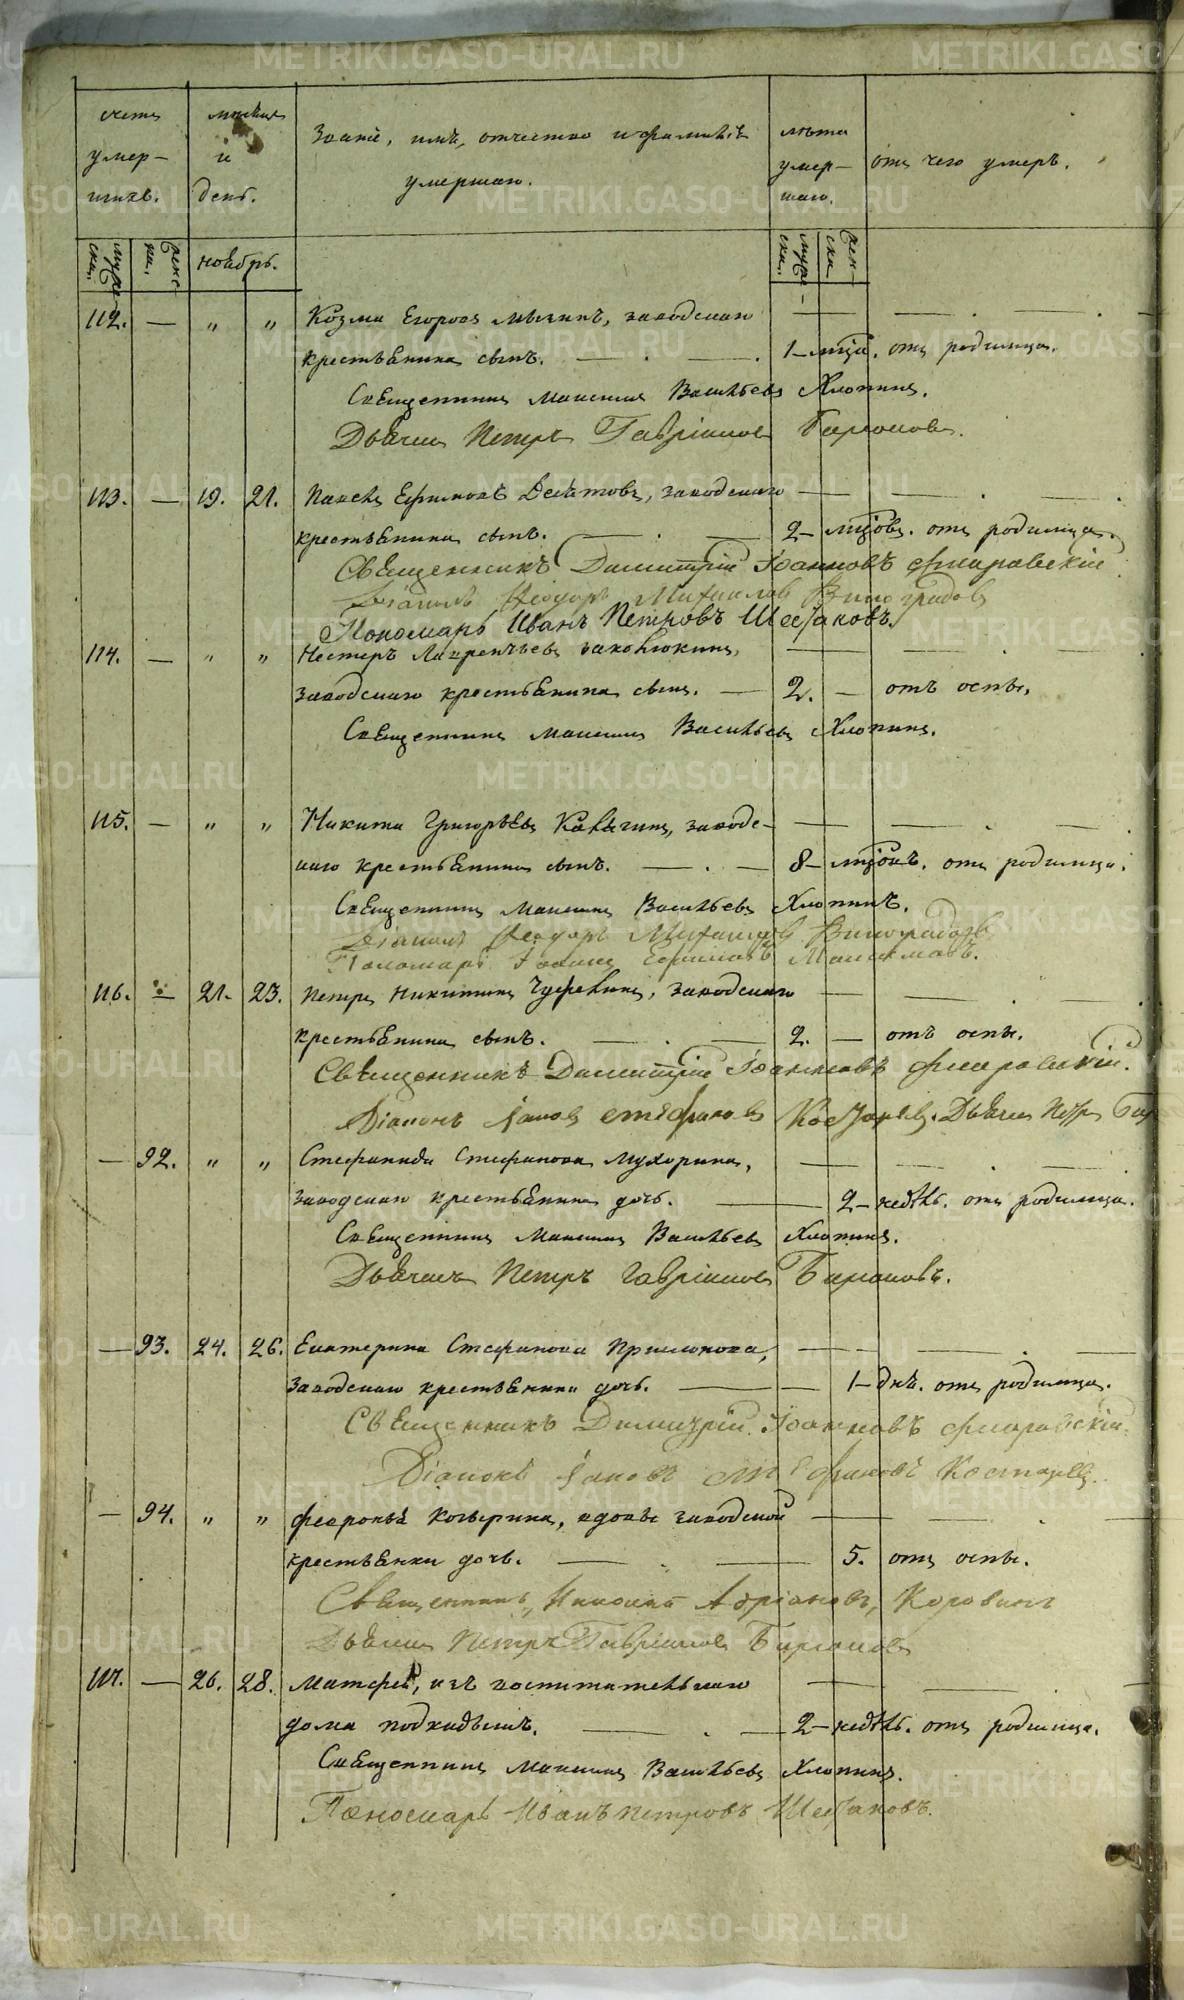 счетъ умер-шихъ.
мѣсяцъ и день.
Званіе, имя, отчество и фамилія умершаго.
лѣта умер-шаго.
отъ чего умеръ.
муже-ска. женс-ки. ноябрь. муже-ска. жен-ска
112. — „ „ Козма Егоровъ заводскаго
крестьянина сынъ. — . — . 1 — мца. отъ родимца.
Священникъ Максимъ Васильевъ Хлопинъ.
Дьячекъ Петръ Гавріиловъ
113. — 19. 21. Павелъ Ефимовъ Десятовъ, заводскаго
крестьянина сынъ. — . — 2 — мцовъ. отъ родимца.
Священникъ Димитрій Іоанновъ Фиаровскій
Діаконъ Ѳеодоръ Михаиловъ Виноградовъ
Пономарь Иванъ Петровъ Шестаковъ.
114. — „ „ Нестеръ Лаврентьевъ
заводскаго крестьянина сынъ. — 2. — отъ оспы.
Священникъ Максимъ Васильевъ Хлопинъ.
115. — „ „ Никита Григорьевъ заводс-
каго крестьянина сынъ. — . — 8 — мцовъ. отъ родимца.
Священникъ Максимъ Васильевъ Хлопинъ.
Діаконъ Ѳеодоръ Михаиловъ Виноградовъ
Пономарь Іоаннъ Ефимовъ Максимовъ.
116. — 21. 23. Петръ Никитинъ заводскаго
крестьянина сынъ. — . — 2. — отъ оспы.
Священникъ Димитрій Іоанновъ Фиаровскій.
Діаконъ Іаковъ Стефановъ Костаревъ. Дьячекъ Петръ
— 92. „ „ Стефанида Стефанова Мухорина,
заводскаго крестьянина дочь. — 2 — недѣль. отъ родимца.
Священникъ Максимъ Васильевъ Хлопинъ.
Дьячекъ Петръ Гавріиловъ
— 93. 24. 26. Екатерина Стефанова
заводскаго крестьянина дочь. — — 1 — днь. отъ родимца.
Священникъ Димитрій Іоанновъ Фиаровскій.
Діаконъ Іаковъ Стефановъ Костаревъ.
— 94. „ „ Февронья вдовы заводской
крестьянки дочь. — . — 5. отъ оспы.
Священникъ Николай Адріановъ, Коровинъ
Дьячекъ Петръ Гавріиловъ
117. — 26. 28. Матфей, изъ воспитательнаго
дома подкидышъ. — . — 2 — недѣль. отъ родимца.
Священникъ Максимъ Васильевъ Хлопинъ.
Пономарь Иванъ Петровъ Шестаковъ.
METRIKI.GASO-URAL.RU